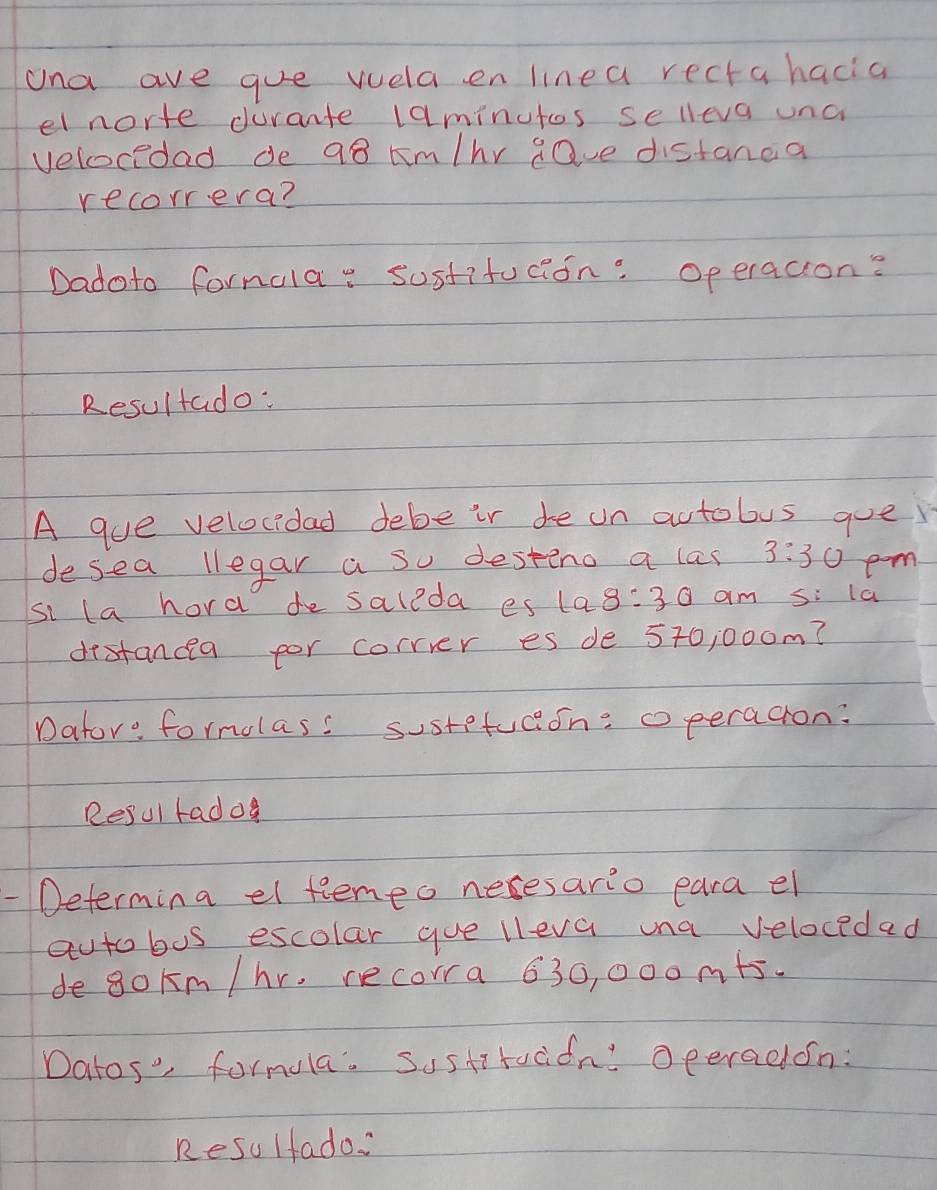 Una ave que vuela en linea recta hacia
el norte durante 19minutos se lleva una
velocidad de 98 Km/hr ¿Que distancia
recorrera?
Dadoto formula: sustitución: operacion:
Resultado:
A que velocidad debe ir de un autobus que
desea llegar a su destino a las 3:30 pm
si la hora de salida es la 8:30 am si la
distancia por correr es de 570,000m?
Dator: formulas: sustitución: operacion:
Resultado:
- Determina el tiempo necesario para el
autobus escolar que lleva una velocidad
de 80Km/hr. recorra 630,000 mts.
Datos: formula: Sustitución: Operación:
Resultado: